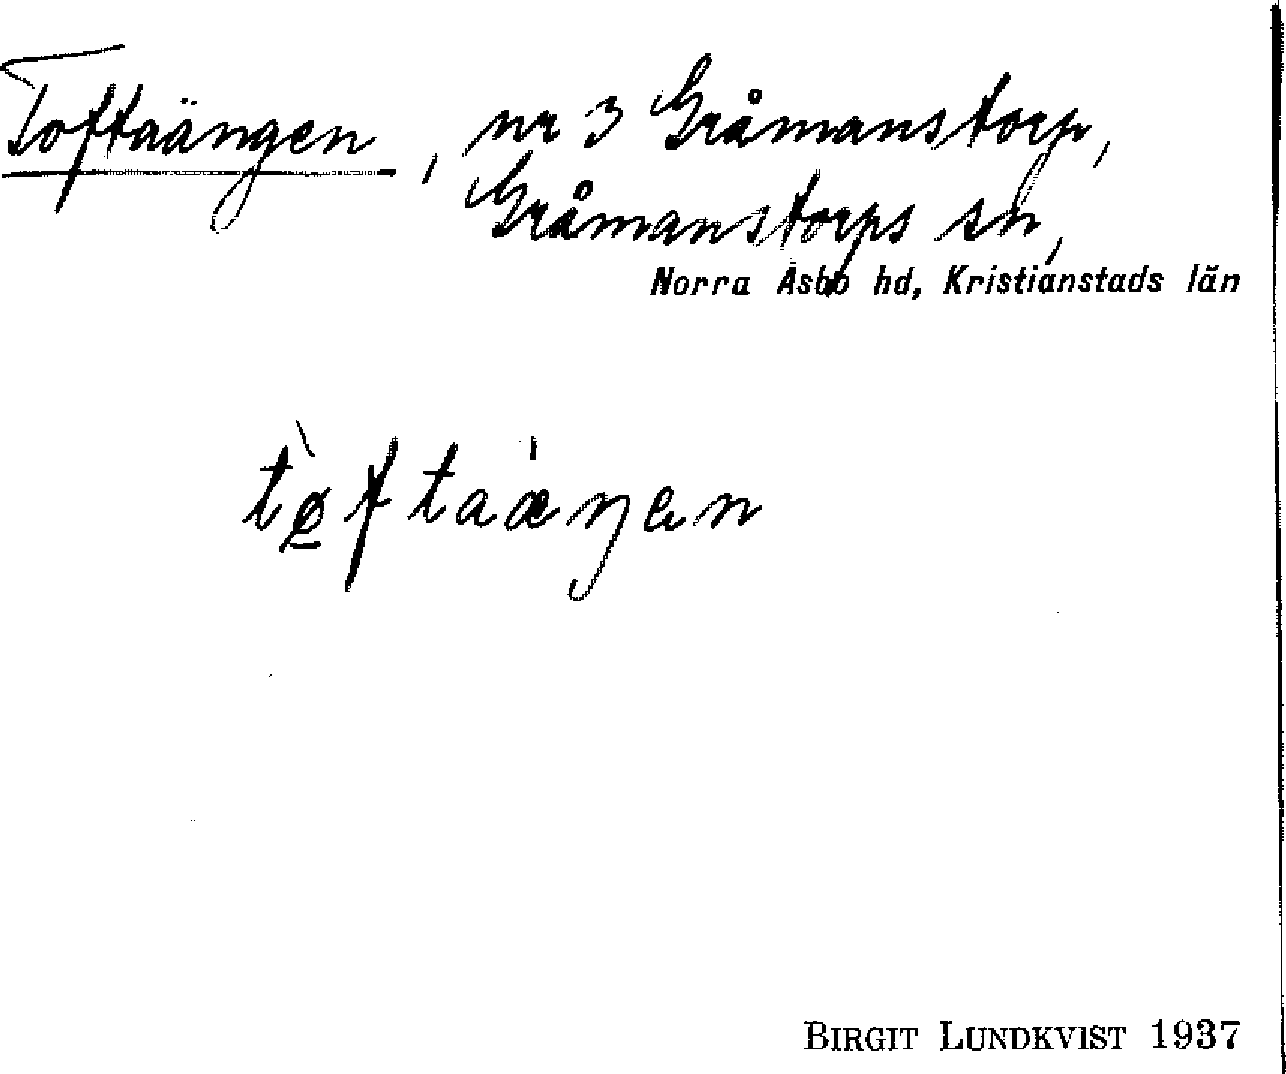 Toftaängen, nr 3 Gråmanstorp,
Gråmanstorps sn,
Norra Åsbo hd, Kristianstads län
tø̲̀ftaæ̀ŋən
BIRGIT LUNDKVIST 1937